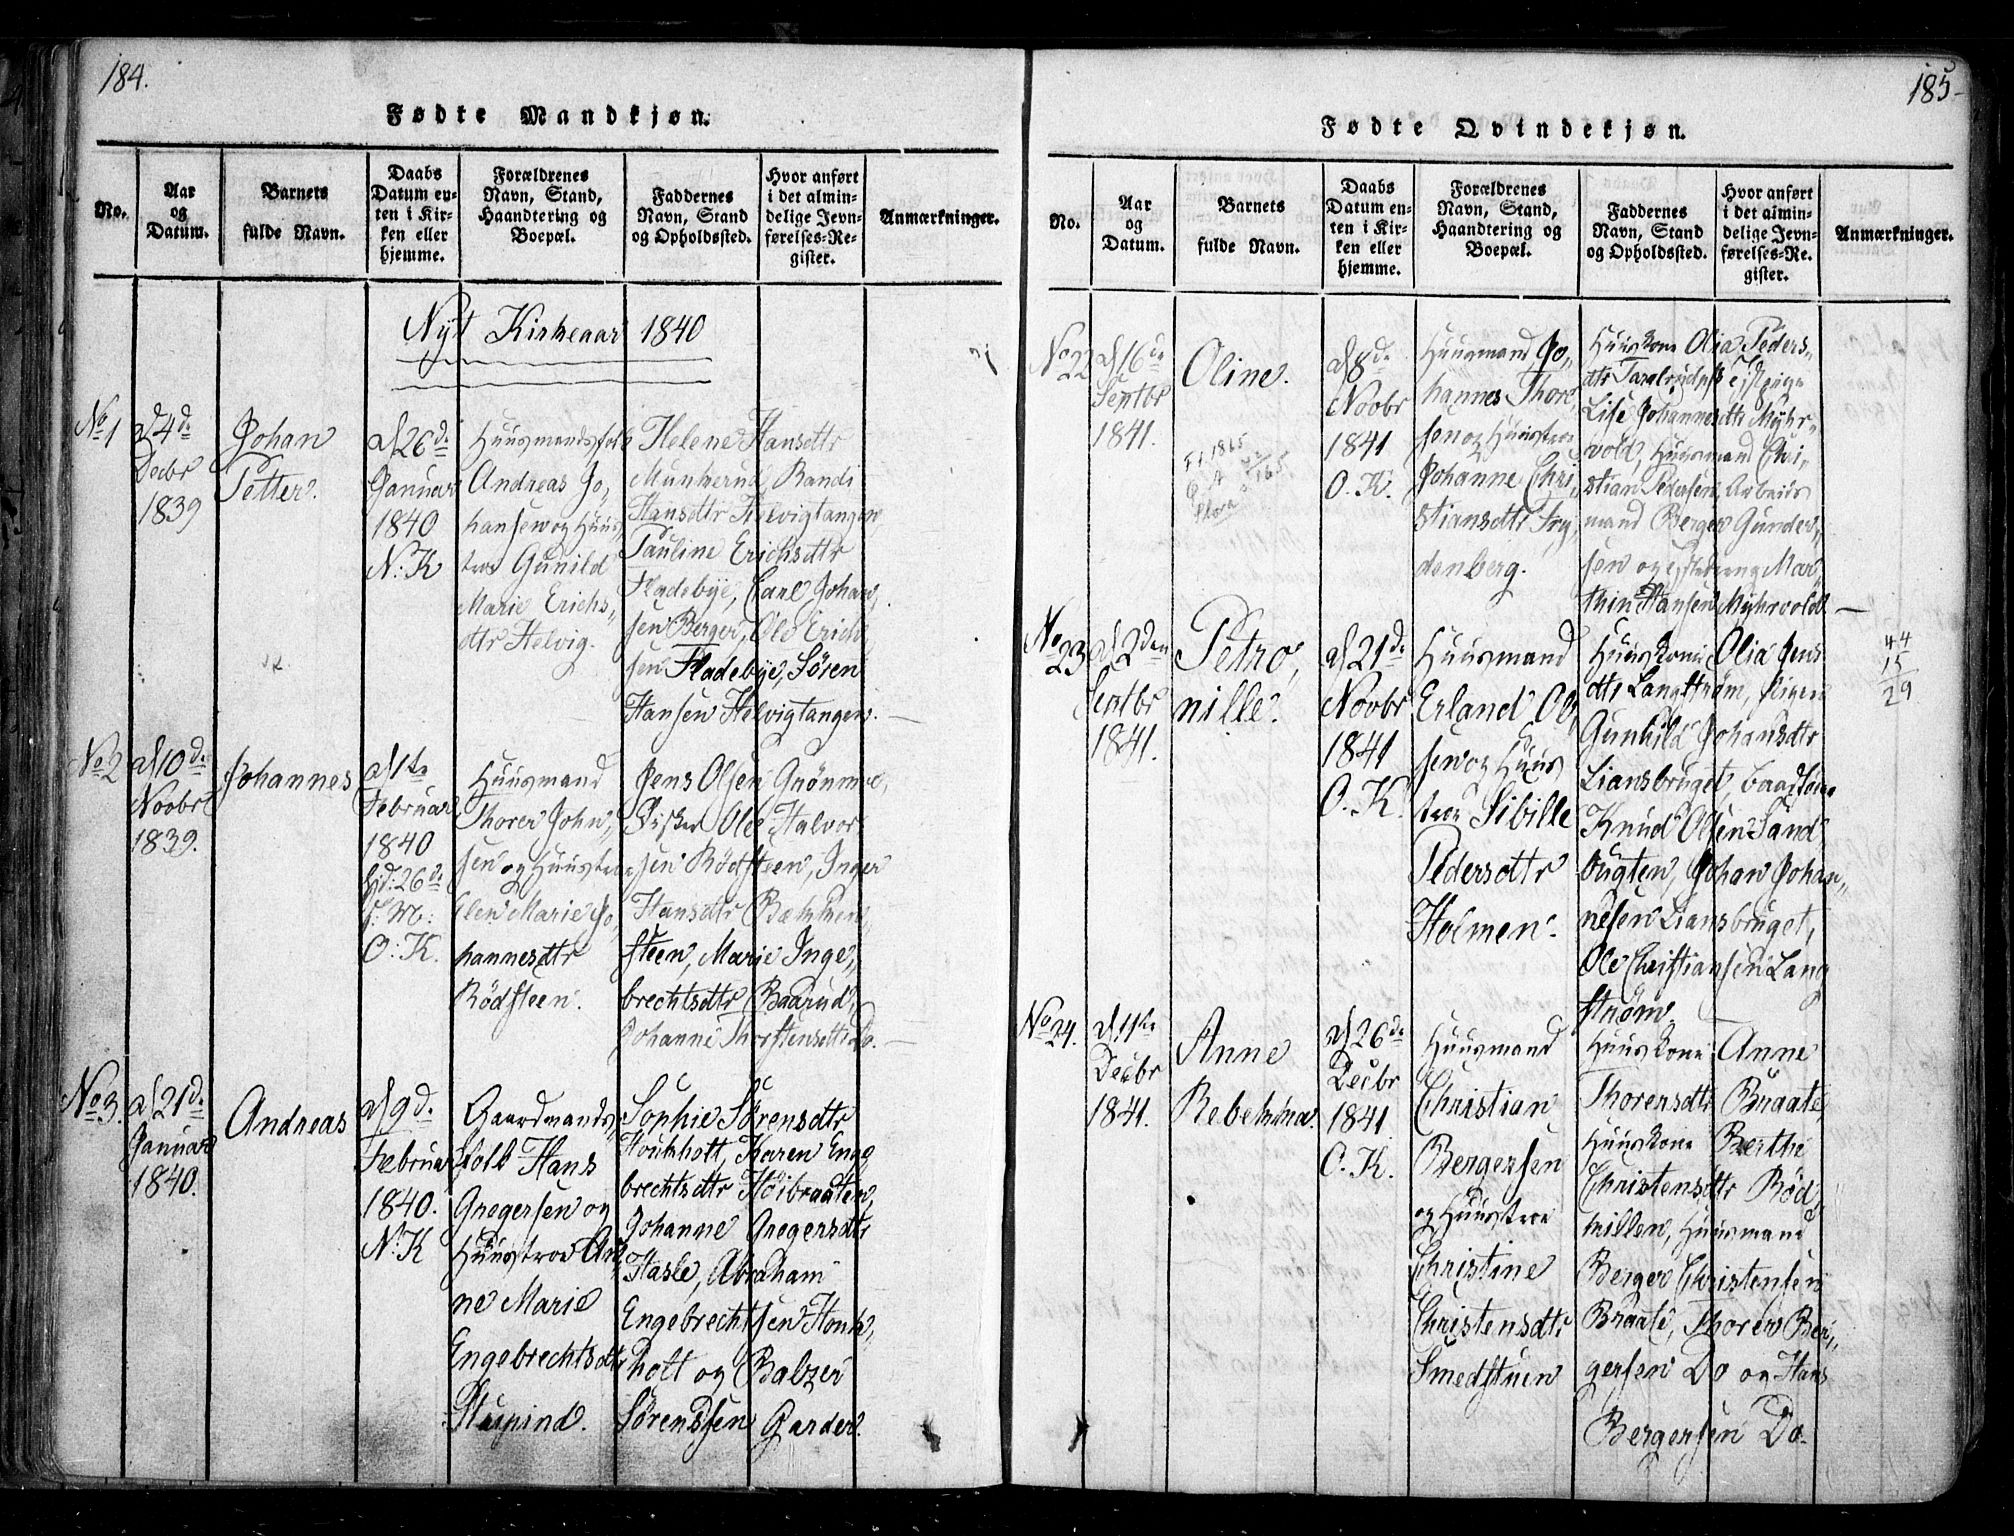 184.
Fødte Mandkjøn.
No.
Aar
og
Datum.
Barnets
fulde Navn.
Daabs
Datum en-
ten i Kir-
ken eller
hjemme.
Forældrenes
Navn, Stand,
Haandtering og
Boepæl.
Faddernes
Navn, Stand
og Opholdssted.
Hvor anført
i det almin-
delige Jevn-
førelses-Re-
gister.
Anmærkninger.
Nyt Kirkeaar 1840
No 1
d 4de
Decbr
1839
Johan
Petter.
d 26de
Januar
1840
N.K
Huusmandsfolk
Andreas Jo-
hansen og Huus-
troe Gunild
Marie Erichs-
dtr Helvig.
Helene Hansdtr
Munkerud, Randi
Hansdtr Helvigtangen
Pauline Erichsdtr
Fladebye, Carl Johan-
sen Berger, Ole Erich-
sen Fladebye, Søren
Hansen Helvigtangen.
No 2
d 10de
Novbr
1839.
Johannes
d 1ste
Februar
1840
Hd: 26de
O: K.
Huusmand
Thorer John-
sen og Huustroe
Elen Marie Jo-
hannesdtr
Rødsteen.
Jens Olsen Grønmoe,
Ole Halvor-
sen Rødsteen, Inger
Hansdtr
steen, Marie Inge-
brechtsdtr Baarud,
Johanne Thorstensdtr Do.
No 3.
d 21de
Januar
1840.
Andreas
d 9de
Februar
1840.
N.K
Gaardmands-
folk Hans
Gregersen og
Huustroe An-
ne Marie
Engebrechtsdtr
Stupind.
Sophie Sørensdtr
Houkholt, Karen Enge-
brechtsdtr Høibraaten,
Johanne Gregersdtr
Hasle, Abraham
Engebrechtsen Houk-
holt og Balzer
Sørenssen Garder.
185
Fødte Qvindekjøn.
No.
Aar
og
Datum.
Barnets
fulde Navn.
Daabs
Datum en-
ten i Kir-
ken eller
hjemme.
Forældrenes
Navn, Stand,
Haandtering og
Boepæl.
Faddernes
Navn, Stand
og Opholdssted.
Hvor anført
i det almin-
delige Jevn-
førelses-Re-
gister.
Anmærkninger.
No 22
d 16de
Septbr
1841.
Oline.
d 8de
Novbr
1841
O.K.
Huusmand Jo-
hannes Thore-
sen og Huustroe
Johanne Chri-
stiansdtr Fry-
denberg.
Huuskone Olia Peders-
dtr Taralrud,
Lise Johannesdtr Myhr-
vold, Huusmand Chri-
stian Pedersen, Arbeids-
mand Berger Gunder-
sen og Mar-
thin Hansen Myhrvold
No 23
d 2den
Septbr
1841.
Petro-
nille.
d 21de
Novbr
1841
O.K.
Huusmand
Erland Ol-
sen og Huus-
troe Sibille
Pedersdtr
Holmen.
Huuskone Olia Jens
dtr Langstrøm, Pigen
Gunhild Johansdtr
Liansbruget,
Knud Olsen Sand-
bugten, Johan Johan-
nesen Liansbruget,
Ole Christiansen Lang
strøm.
44
15
29
No 24.
d 11te
Decbr
1841.
Anne
Rebekkina.
d 26de
Decbr
1841
O.K.
Huusmand
Christian
Bergersen
og Huustroe
Christine
Christensdtr
Smedstuen
Huuskone Anne
Thorensdtr Braate,
Huuskone Berthe
Christensdtr Rød-
millen, Huusmand
Berger Christensen
Braate, Thorer Ber-
gersen Do og Hans
Bergersen Do.